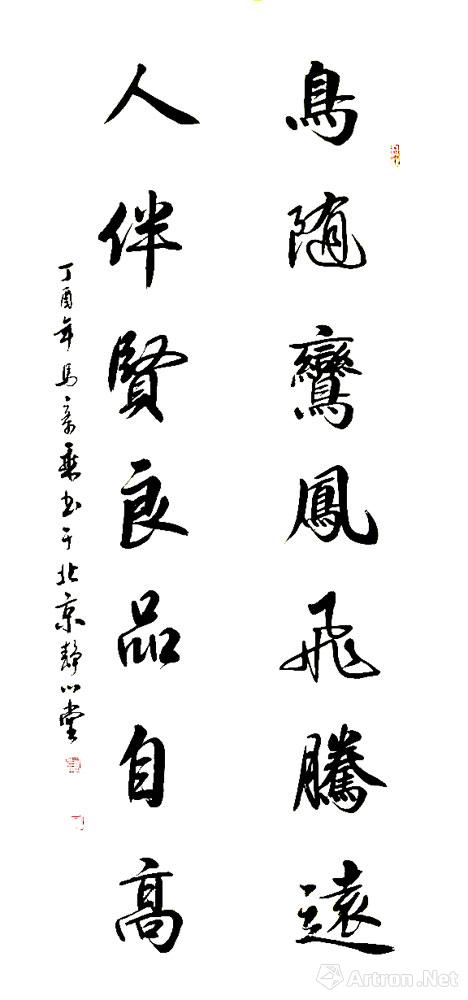 鳥隨鸞鳳飛騰遠
人伴賢良品自高
丁酉年馬育乘书于北京靜心堂
Artron.Net